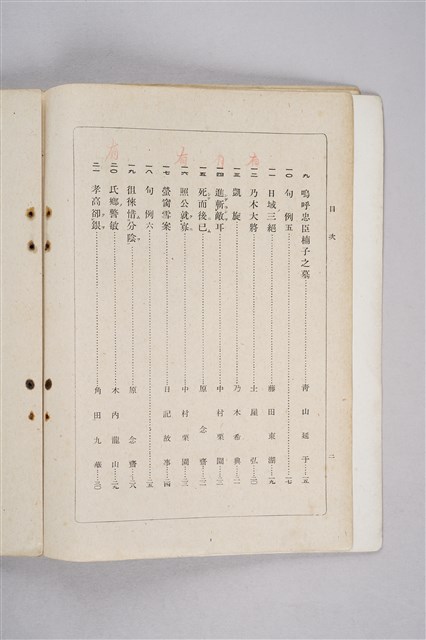 目次
二
九 嗚呼忠臣楠子之墓 青山延于
一〇 句例五 一七
一一 日域三絕 藤田東湖 一九
一二 乃木大將 土屋弘 二〇
一三 凱旋 乃木希典
一四 進斬敵耳 中村栗園
一五 死而後已 原念齋
一六 照公就寡 中村栗園
一七 螢窗雪案 日記故事 二四
一八 句例六 二五
一九 徂徠惜分陰 原念齋 二六
二〇 氏鄕警敏 木內龍山 二九
二一 孝高卻銀 角田九華 三〇
有
有
有
有